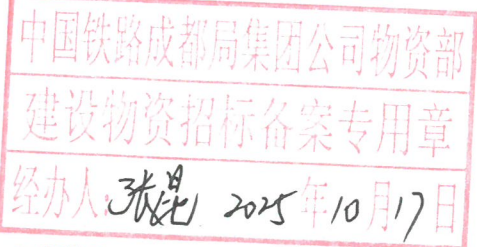 中国铁路成都局集团公司物资部
建设物资招标备案专用章
经办人:张昆 2025年10月17日